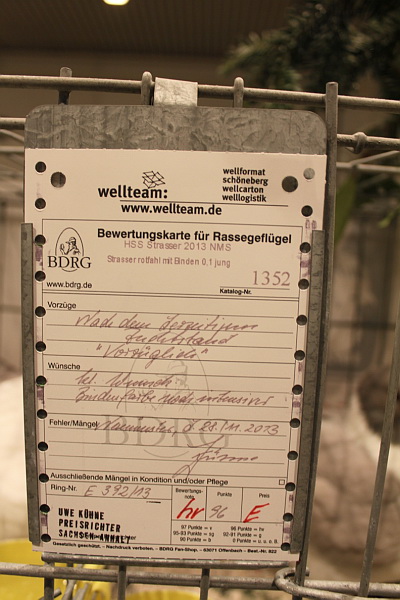 wellteam:
wellformat
schöneberg
wellcarton
welllogistik
www.wellteam.de
BDRG
Bewertungskarte für Rassegeflügel
HSS Strasser 2013 NMS
Strasser rotfahl mit Binden 0,1 jung
1352
www.bdrg.de
Katalog-Nr.
Vorzüge
Nach dem derzeitigen
Zuchtstand
"Vorzüglich"
Wünsche
kl. Wunsch
Bindenfarbe noch intensiver
BDRG
Fehler/Mängel
Neumünster, d 28.11.2013
Ausschließende Mängel in Kondition und/oder Pflege
Ring-Nr.
E 392/13
Bewertungs-
note
Punkte
Preis
hv
96
E
UWE KÜHNE
PREISRICHTER
SACHSEN-ANHALT
97 Punkte = v
96 Punkte = hv
95-93 Punkte = sg
92-91 Punkte = g
90 Punkte = b
0 Punkte = u, o. B.
Gesetzlich geschützt. - Nachdruck verboten. - BDRG Fan-Shop. - 63071 Offenbach - Best.-Nr. 822